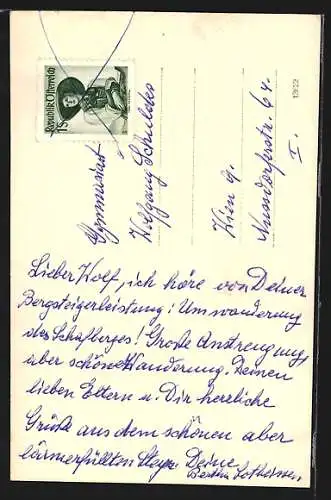 Republik Österreich
1S
13922
Gymnasiast
Wolfgang Schuldes
Wien 9.
Nussdorferstr. 64.
I.
Lieber Wolf, ich höre von Deiner
Bergsteigerleistung: Umwanderung
des Schafberges! Große Anstrengung,
aber schöne Wanderung. Deinen
lieben Eltern u. Dir herzliche
Grüße aus dem schönen aber
lärmerfüllten Steyr. Deine
Bertha